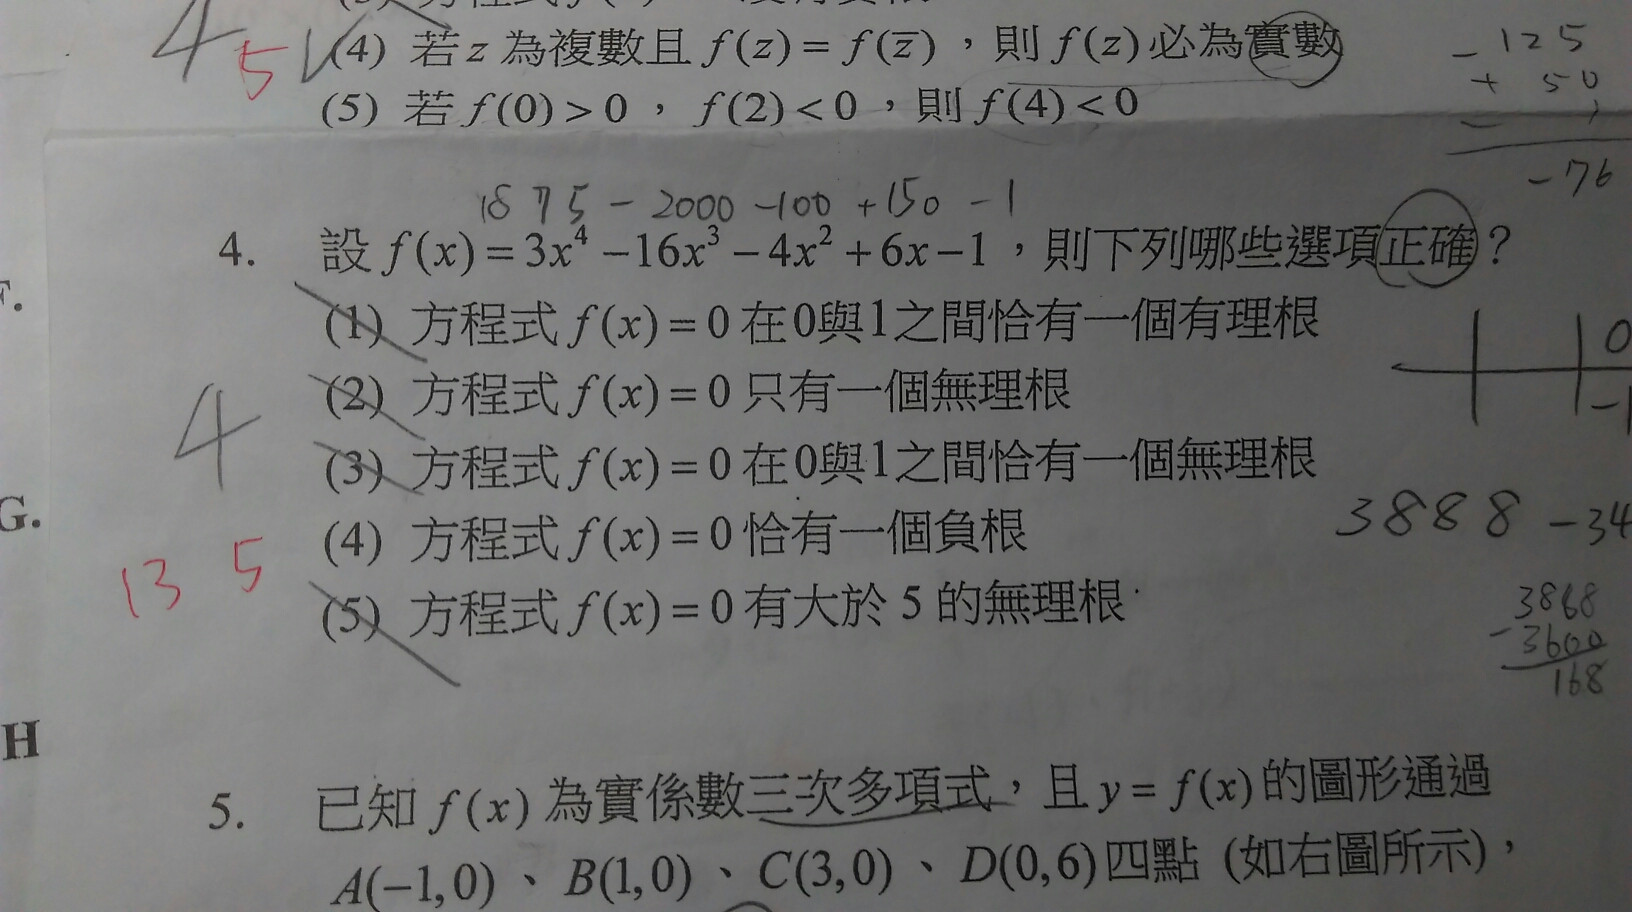 4 5 (4) 若 z 為複數且 f(z) = f(z̅)，則 f(z) 必為實數
(5) 若 f(0) > 0， f(2) < 0，則 f(4) < 0
-125
+ 50
-76
1875 - 2000 - 100 + 150 - 1
4. 設 f(x) = 3x⁴ − 16x³ − 4x² + 6x − 1，則下列哪些選項正確？
F.
(1) 方程式 f(x) = 0 在 0 與 1 之間恰有一個有理根
0
-1
(2) 方程式 f(x) = 0 只有一個無理根
4
(3) 方程式 f(x) = 0 在 0 與 1 之間恰有一個無理根
G.
(4) 方程式 f(x) = 0 恰有一個負根
3888 - 34
13 5
(5) 方程式 f(x) = 0 有大於 5 的無理根
3868
- 3600
168
H
5. 已知 f(x) 為實係數三次多項式，且 y = f(x) 的圖形通過
A(−1,0)、B(1,0)、C(3,0)、D(0,6) 四點 (如右圖所示)，